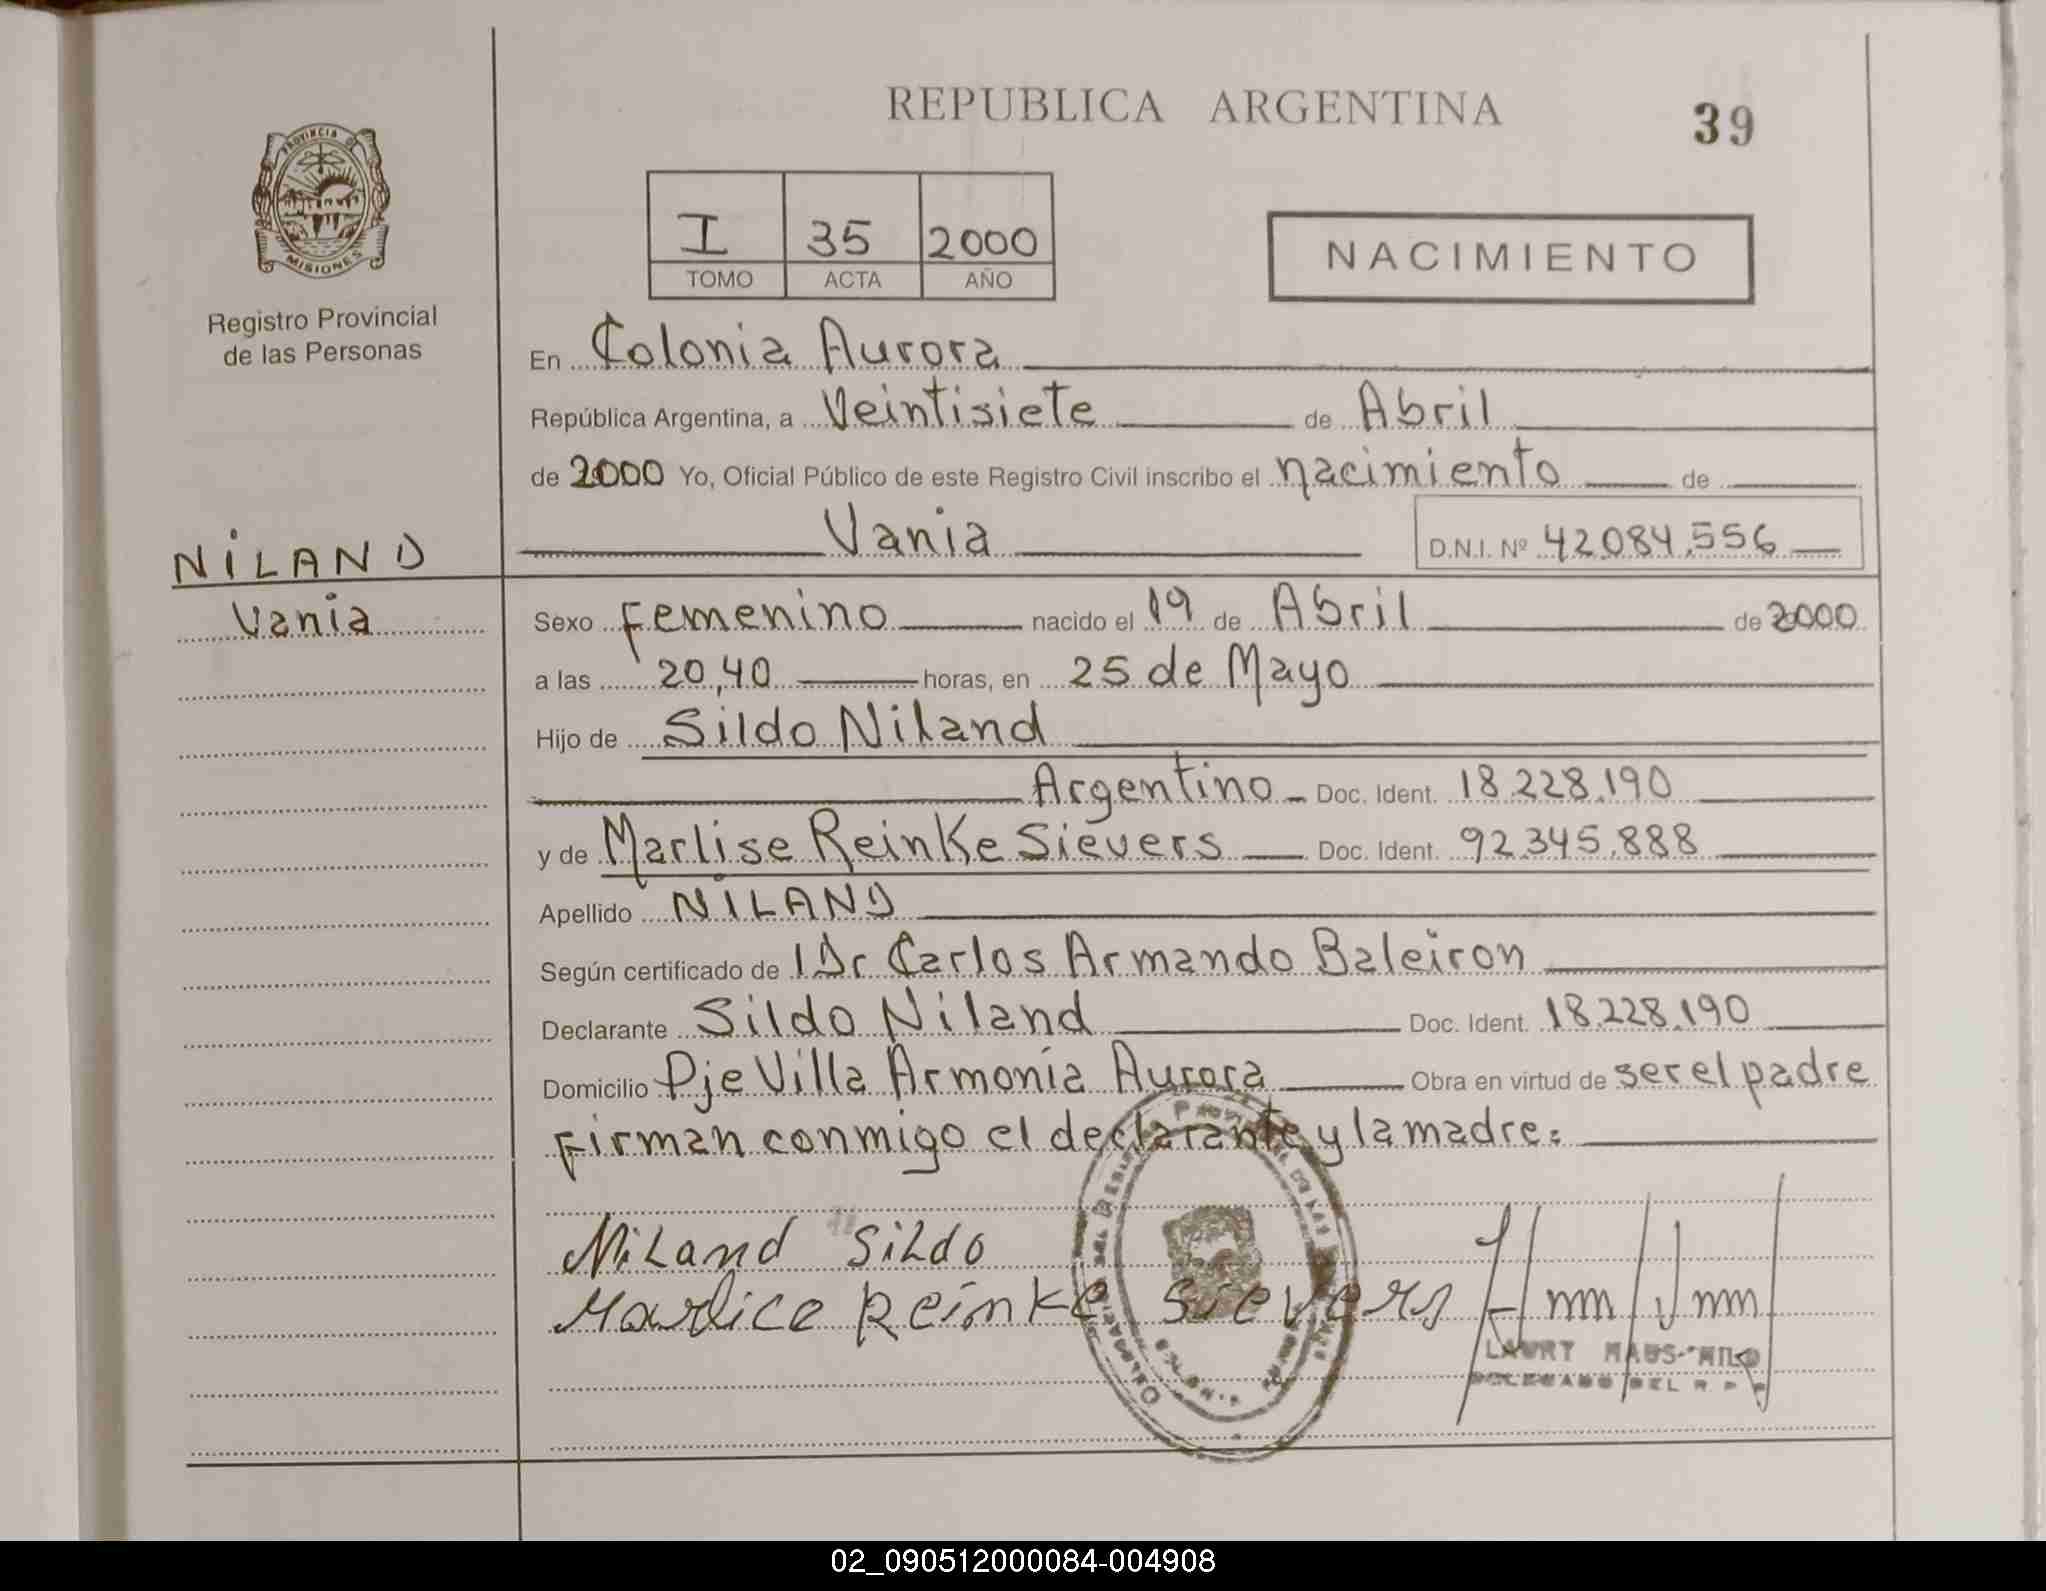 REPUBLICA ARGENTINA
39
PROVINCIA DE
MISIONES
Registro Provincial
de las Personas
I 35 2000
TOMO ACTA AÑO
NACIMIENTO
En Colonia Aurora
República Argentina, a Veintisiete de Abril
de 2000 Yo, Oficial Público de este Registro Civil inscribo el nacimiento de
Vania D.N.I. Nº 42.084.556
NILAND
Vania
Sexo Femenino nacido el 19 de Abril de 2000
a las 20,40 horas, en 25 de Mayo
Hijo de Sildo Niland
Argentino Doc. Ident. 18.228.190
y de Marlise Reinke Sievers Doc. Ident. 92.345.888
Apellido NILAND
Según certificado de Dr Carlos Armando Baleiron
Declarante Sildo Niland Doc. Ident. 18.228.190
Domicilio Pje Villa Armonía Aurora Obra en virtud de ser el padre
Firman conmigo el declarante y la madre:
Niland Sildo
Marlice Reinke Sievers
LAURY MAUS
DELEGADO DEL R. P. P.
02_090512000084-004908